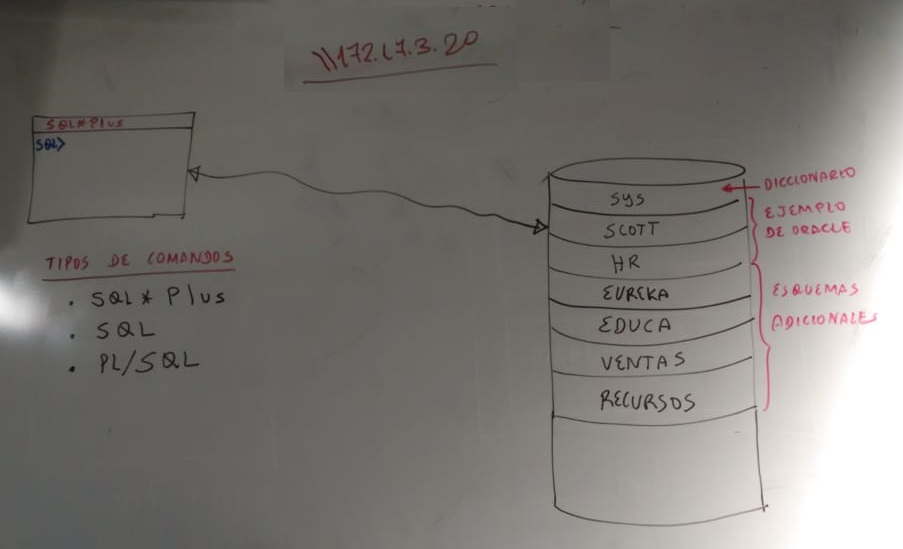 \\172.17.3.20
SQL*Plus
SQL>
TIPOS DE COMANDOS
• SQL * Plus
• SQL
• PL/SQL
SYS
SCOTT
HR
EUREKA
EDUCA
VENTAS
RECURSOS
DICCIONARIO
EJEMPLO
DE ORACLE
ESQUEMAS
ADICIONALES